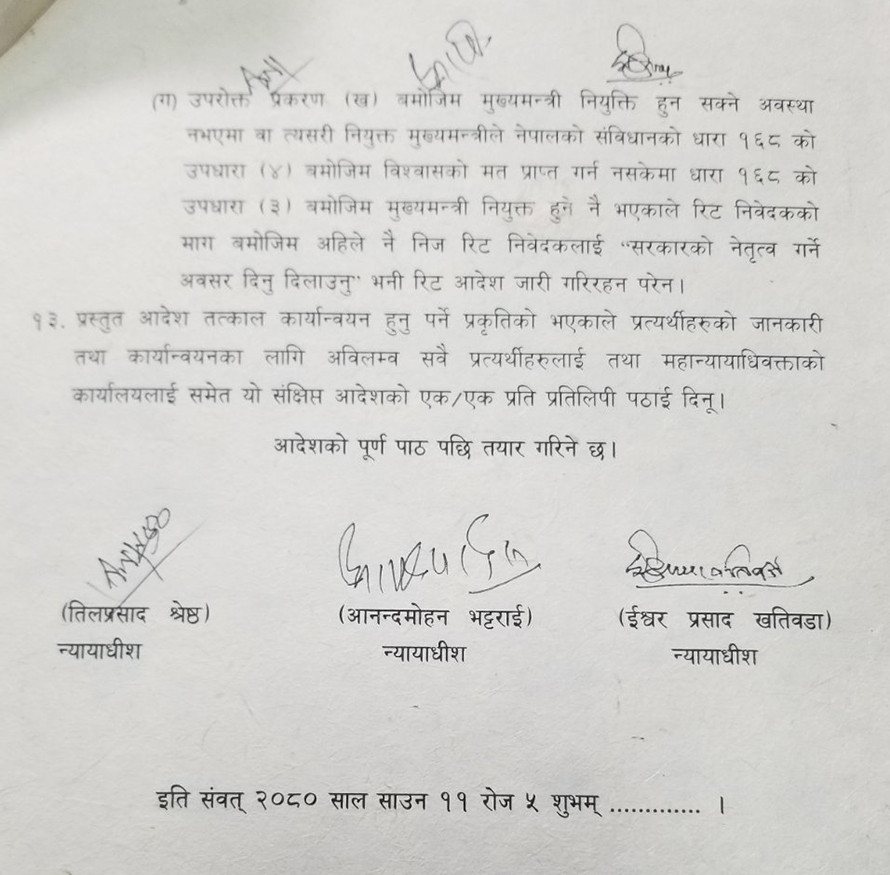 (ग) उपरोक्त प्रकरण (ख) बमोजिम मुख्यमन्त्री नियुक्ति हुन सक्ने अवस्था
नभएमा वा त्यसरी नियुक्त मुख्यमन्त्रीले नेपालको संविधानको धारा १६८ को
उपधारा (४) बमोजिम विश्वासको मत प्राप्त गर्न नसकेमा धारा १६८ को
उपधारा (३) बमोजिम मुख्यमन्त्री नियुक्त हुने नै भएकाले रिट निवेदकको
माग बमोजिम अहिले नै निज रिट निवेदकलाई "सरकारको नेतृत्व गर्ने
अवसर दिनु दिलाउनु" भनी रिट आदेश जारी गरिरहन परेन।
१३. प्रस्तुत आदेश तत्काल कार्यान्वयन हुनु पर्ने प्रकृतिको भएकाले प्रत्यर्थीहरुको जानकारी
तथा कार्यान्वयनका लागि अविलम्ब सवै प्रत्यर्थीहरुलाई तथा महान्यायाधिवक्ताको
कार्यालयलाई समेत यो संक्षिप्त आदेशको एक/एक प्रति प्रतिलिपी पठाई दिनू।
आदेशको पूर्ण पाठ पछि तयार गरिने छ।
(तिलप्रसाद श्रेष्ठ) (आनन्दमोहन भट्टराई) (ईश्वर प्रसाद खतिवडा)
न्यायाधीश न्यायाधीश न्यायाधीश
इति संवत् २०८० साल साउन ११ रोज ५ शुभम् ............. ।